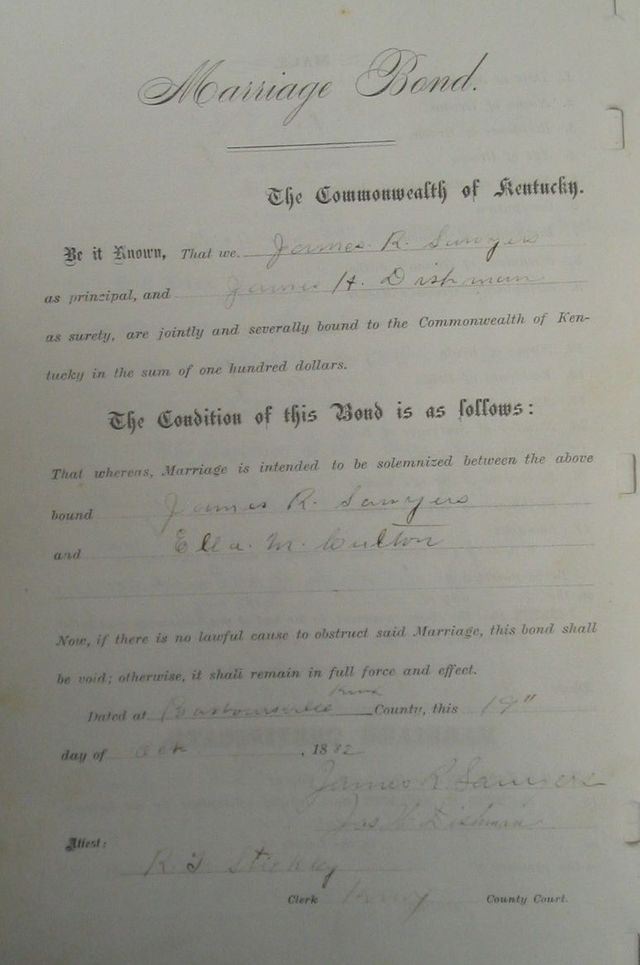 Marriage Bond.
The Commonwealth of Kentucky.
Be it Known, That we James R. Sawyers
as principal, and James H. Dishman
as surety, are jointly and severally bound to the Commonwealth of Ken-
tucky in the sum of one hundred dollars.
The Condition of this Bond is as follows:
That whereas, Marriage is intended to be solemnized between the above
bound James R. Sawyers
and Ella. M. Culton
Now, if there is no lawful cause to obstruct said Marriage, this bond shall
be void; otherwise, it shall remain in full force and effect.
Knox
Dated at Barboursville County, this 19"
day of Oct, 1882
James R. Sawyers
Jas H. Dishman
Attest:
Clerk Knox County Court.